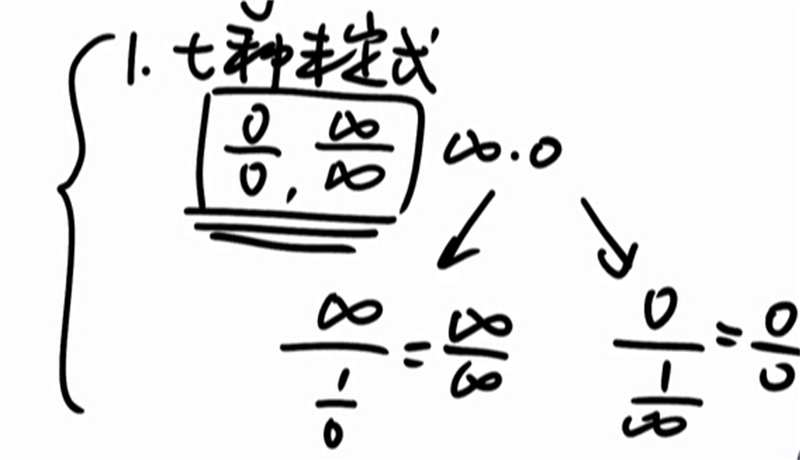 1. 七种未定式
0/0, ∞/∞ ∞·0
∞/(1/0) = ∞/∞ 0/(1/∞) = 0/0